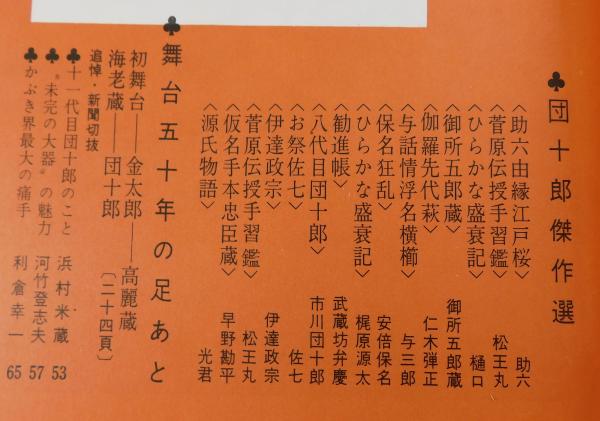 ♣団十郎傑作選
〈助六由縁江戸桜〉 助六
〈菅原伝授手習鑑〉 松王丸
〈ひらかな盛衰記〉 樋口
〈御所五郎蔵〉 御所五郎蔵
〈伽羅先代萩〉 仁木弾正
〈与話情浮名横櫛〉 与三郎
〈保名狂乱〉 安倍保名
〈ひらかな盛衰記〉 梶原源太
〈勧進帳〉 武蔵坊弁慶
〈八代目団十郎〉 市川団十郎
〈お祭佐七〉 佐七
〈伊達政宗〉 伊達政宗
〈菅原伝授手習鑑〉 松王丸
〈仮名手本忠臣蔵〉 早野勘平
〈源氏物語〉 光君
♣舞台五十年の足あと
初舞台――金太郎――高麗蔵
海老蔵――団十郎 〔二十四頁〕
追悼・新聞切抜
♣十一代目団十郎のこと 浜村米蔵 53
♣“未完の大器”の魅力 河竹登志夫 57
♣かぶき界最大の痛手 利倉幸一 65